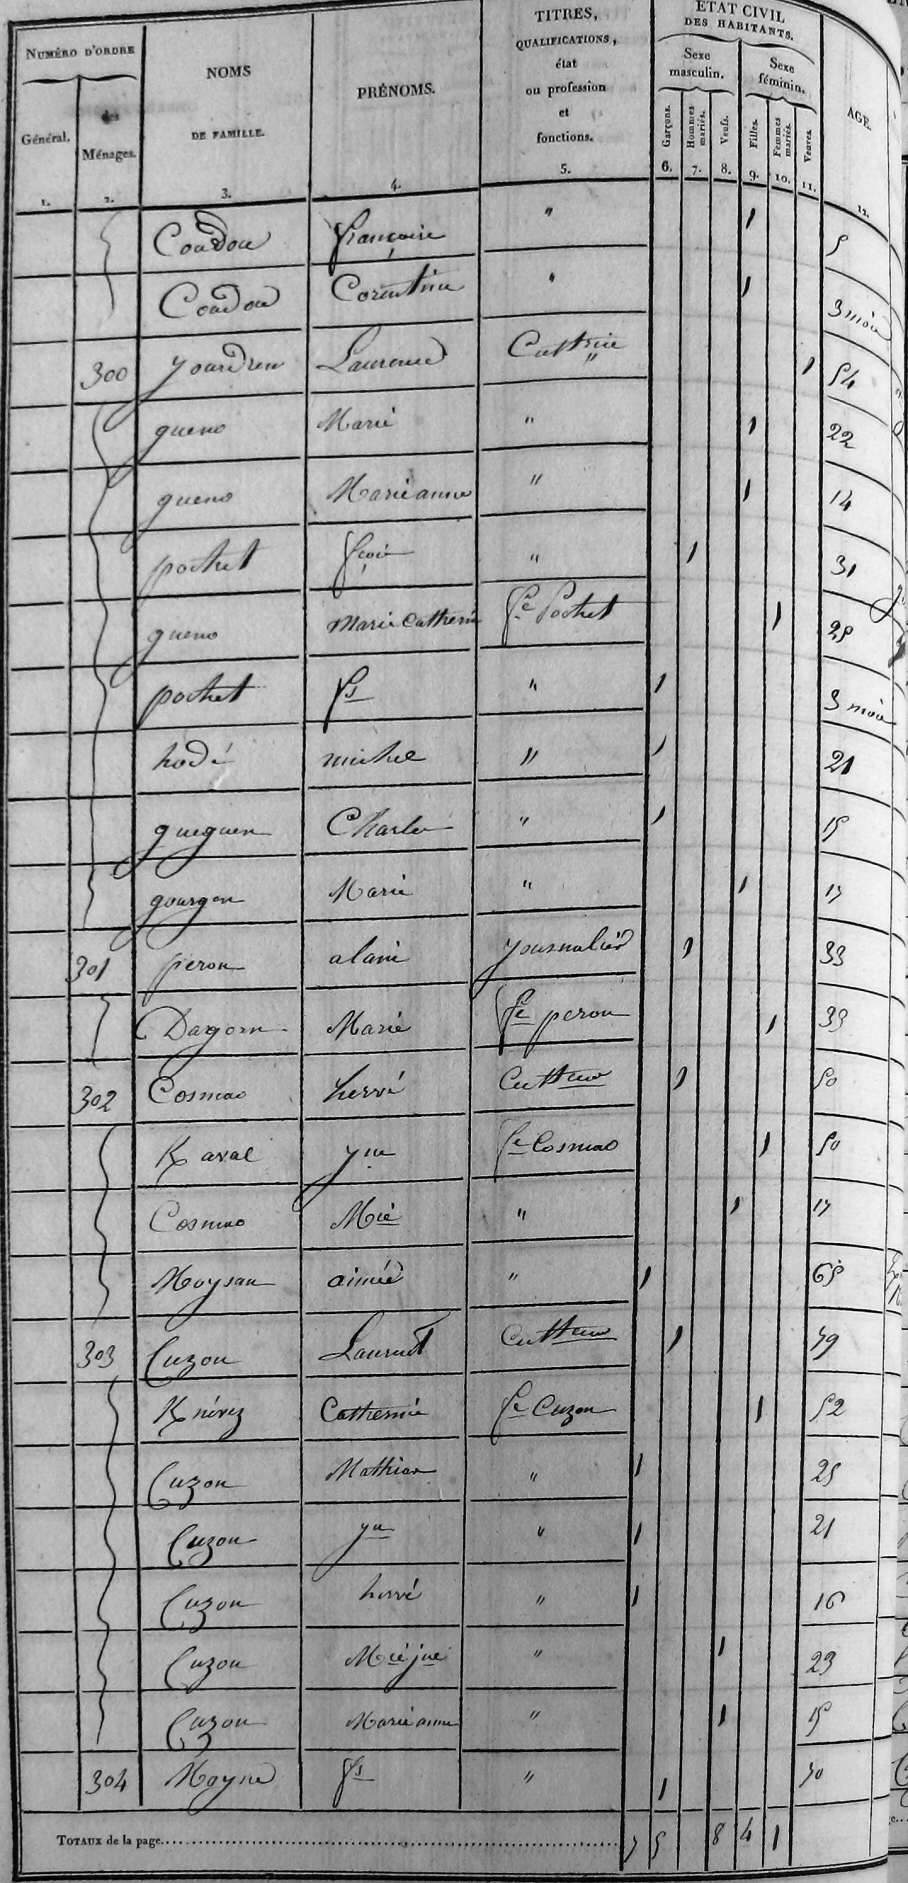 NUMÉRO D'ORDRE
Général.
des Ménages.
NOMS DE FAMILLE.
PRÉNOMS.
TITRES, QUALIFICATIONS, état ou profession et fonctions.
ÉTAT CIVIL DES HABITANTS.
Sexe masculin.
Sexe féminin.
Garçons.
Hommes mariés.
Veufs.
Filles.
Femmes mariées.
Veuves.
AGE.
1. 2. 3. 4. 5. 6. 7. 8. 9. 10. 11. 12.
Coudou françoise " 1 5
Coudou Corentine " 1 3 mois
300 youdren Laurence Cultrice " 1 54
gueno Marie " 1 22
gueno Marie anne " 1 14
pochet fçois " 1 31
gueno marie Catherine fe Pochet 1 25
pochet fs " 1 3 mois
hodé michel " 1 21
gueguen Charles " 1 15
gourgon Marie " 1 17
301 peron alain journalier 1 33
Dagorn Marie fe peron 1 33
302 Cosmao hervé Cultteur 1 50
K aval yne fe Cosmao 1 50
Cosmao Mie " 1 17
Moysan aimée " 1 65
303 Cuzon Laurent Cultteur 1 49
K névez Catherine fe Cuzon 1 52
Cuzon Mathias " 1 25
Cuzon yn " 1 21
Cuzon hervé " 1 16
Cuzon Mie jne " 1 23
Cuzon Marie anne " 1 15
304 Moyne fs " 1 30
TOTAUX de la page 7 5 8 4 1